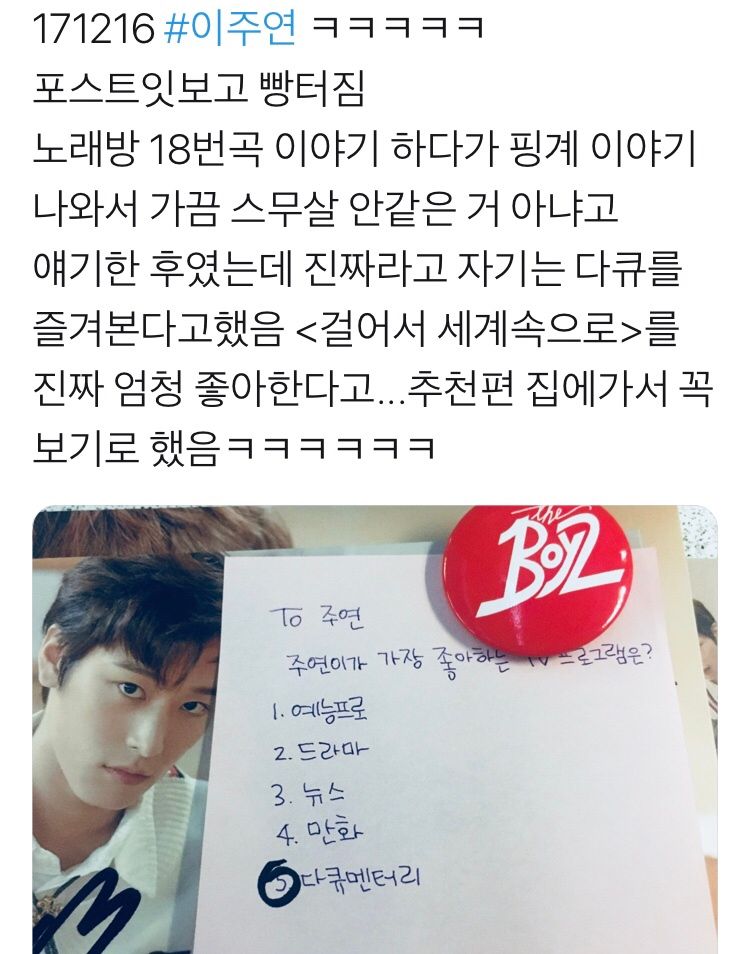 171216 #이주연 ㅋㅋㅋㅋㅋ
포스트잇보고 빵터짐
노래방 18번곡 이야기 하다가 핑계 이야기
나와서 가끔 스무살 안같은 거 아냐고
얘기한 후였는데 진짜라고 자기는 다큐를
즐겨본다고했음 <걸어서 세계속으로>를
진짜 엄청 좋아한다고...추천편 집에가서 꼭
보기로 했음ㅋㅋㅋㅋㅋㅋ
the
BoyZ
To 주연
주연이가 가장 좋아하는 TV 프로그램은?
1. 예능프로
2. 드라마
3. 뉴스
4. 만화
5. 다큐멘터리